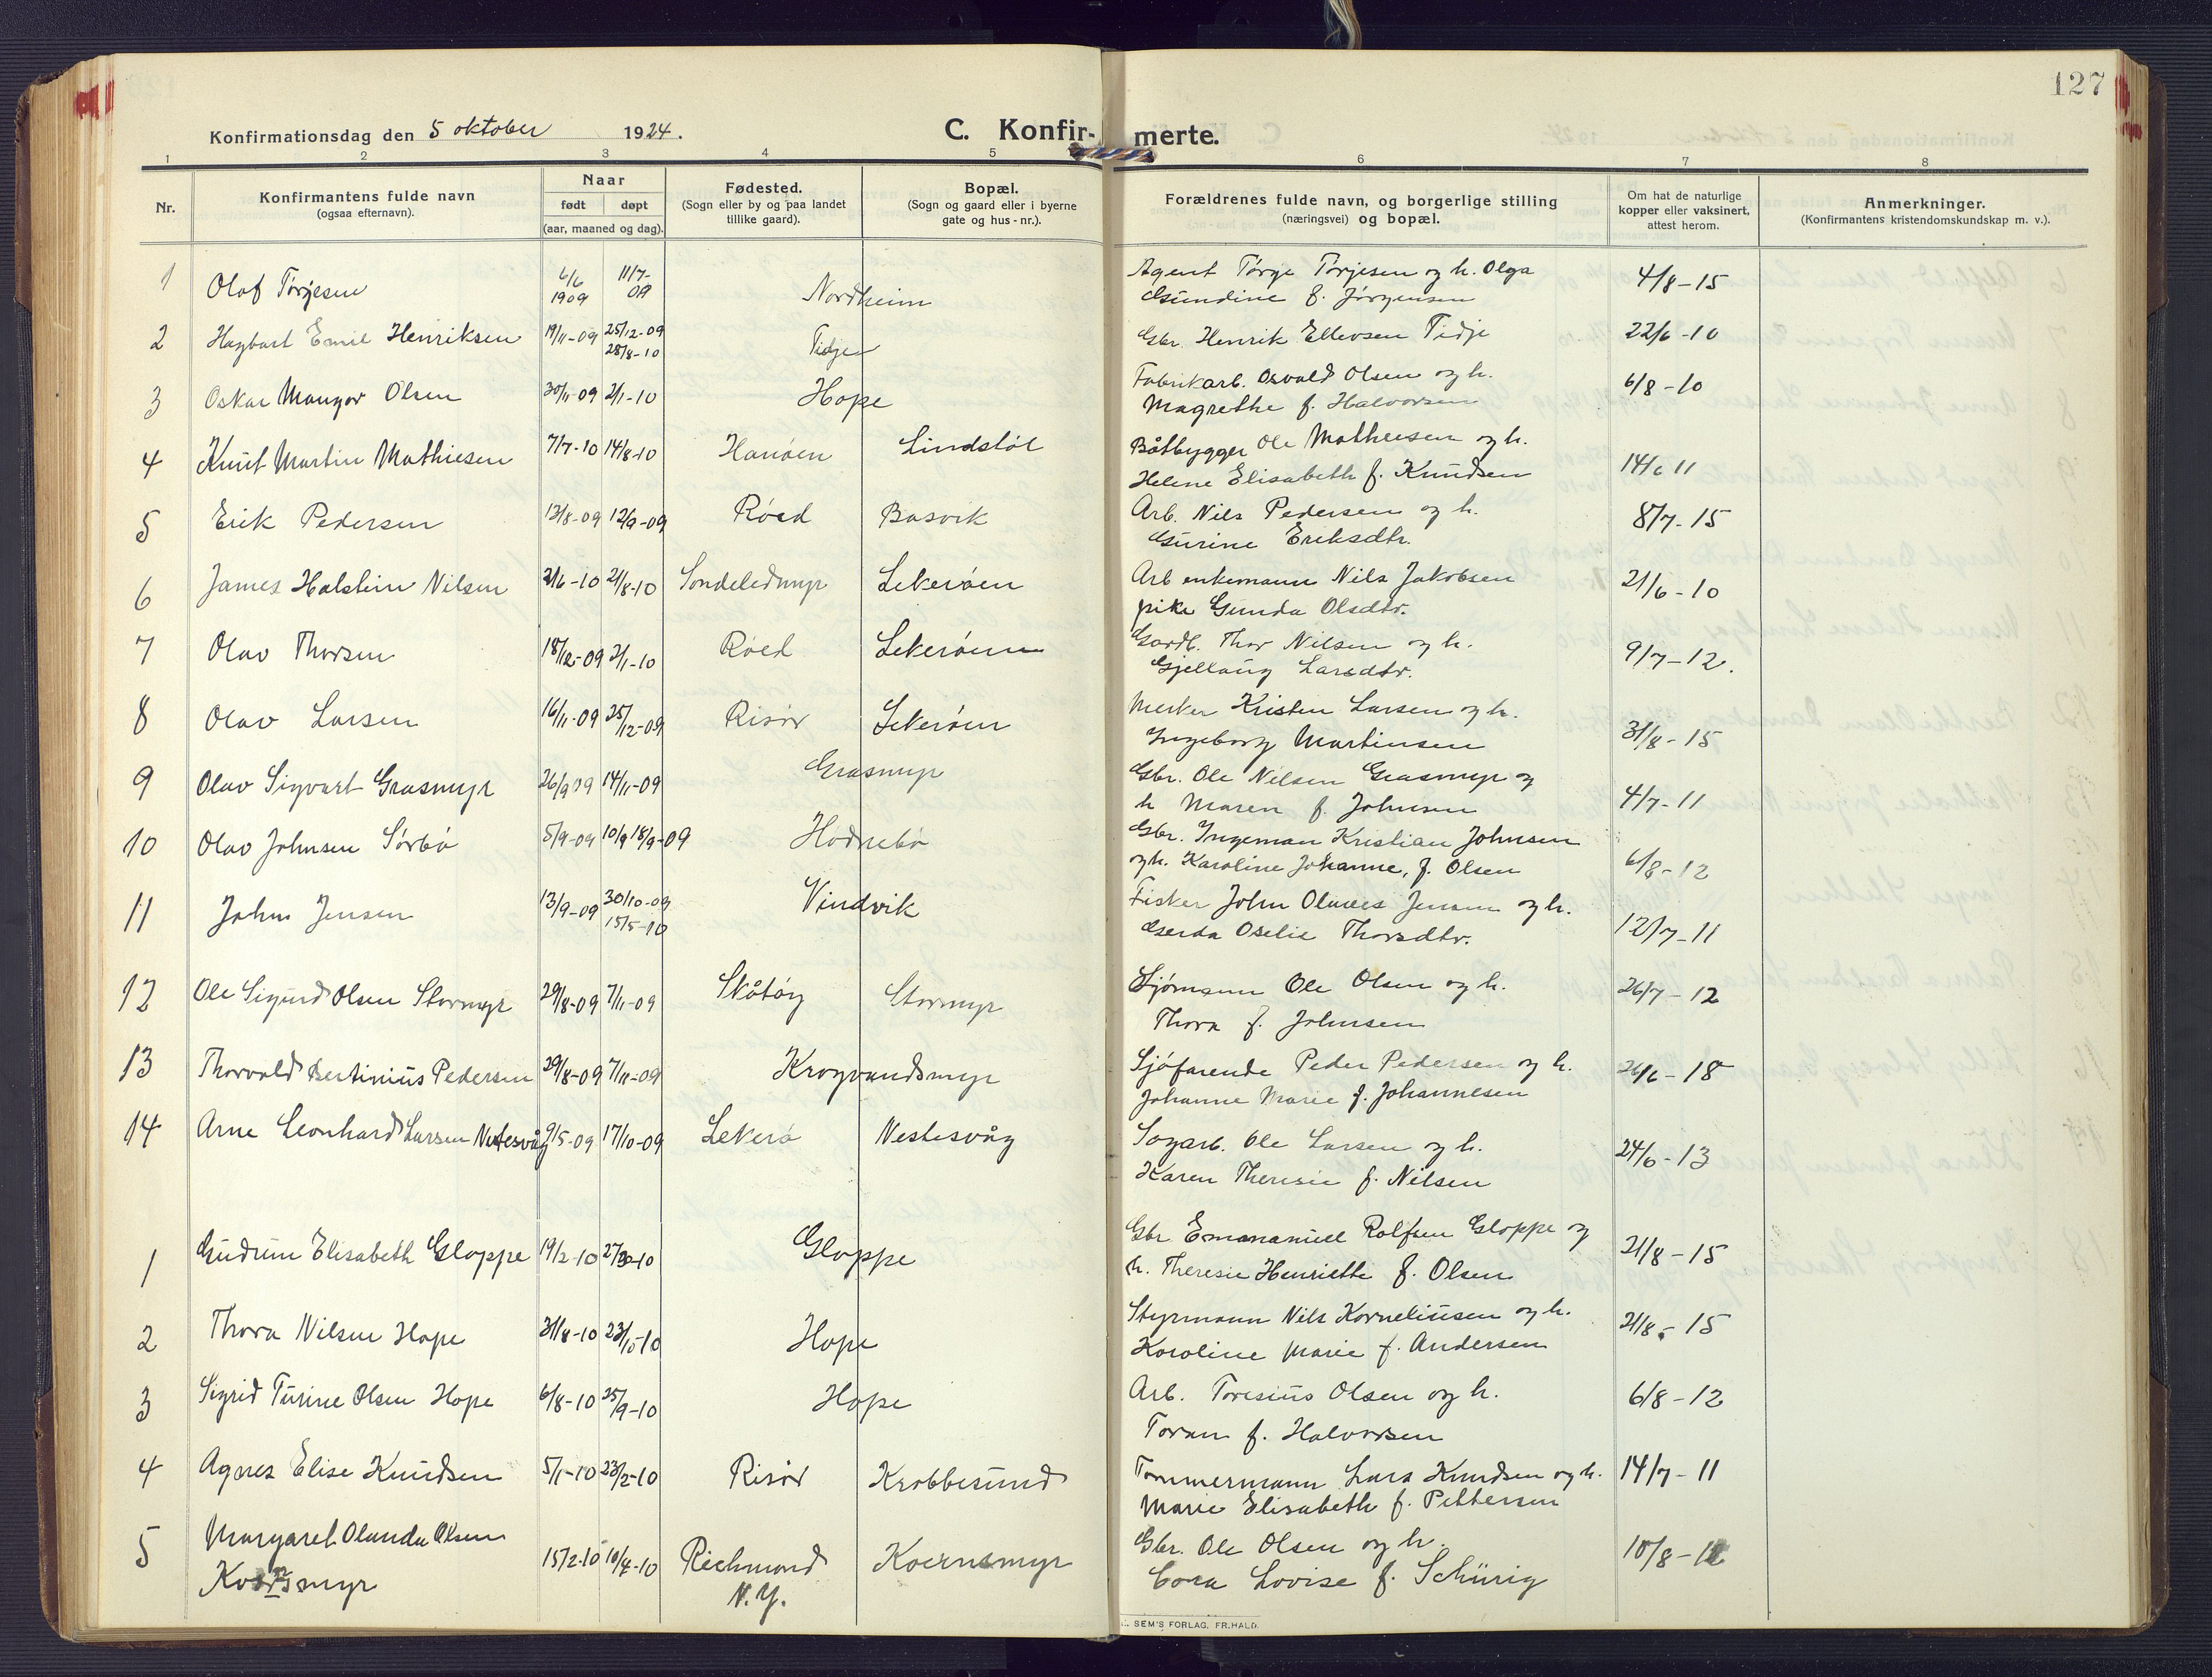 127
Konfirmationsdag den 5 oktober 1924.
C. Konfir- merte.
1 2 3 4 5 6 7 8
Nr.
Konfirmantens fulde navn
(ogsaa efternavn).
Naar
født døpt
(aar, maaned og dag).
Fødested.
(Sogn eller by og paa landet
tillike gaard).
Bopæl.
(Sogn og gaard eller i byerne
gate og hus - nr.).
Forældrenes fulde navn, og borgerlige stilling
(næringsvei) og bopæl.
Om hat de naturlige
kopper eller vaksinert,
attest herom.
Anmerkninger.
(Konfirmantens kristendomskundskap m. v.).
1 Olaf Tørjesen 6/6 1909 11/7-09 Nordheim
Agent Tørge Tørjesen og h. Olga
Gundine f. Jørgensen 4/8-15
2 Hagbart Emil Henriksen 19/11-09 25/12-09 28/8-10 Tidjen
Gbr. Henrik Ellevsen Tidje 22/6-10
3 Oskar Mangor Olsen 30/11-09 2/1-10 Hope
Fabrikarb. Osvald Olsen og h.
Magrethe f. Halvorsen 6/8-10
4 Knut Martin Mathiesen 7/7-10 14/8-10 Hanøen Lindstøl
Båtbygger Ole Mathiesen og h.
Helene Elisabeth f. Knudsen 14/6 11
5 Erik Pedersen 13/8-09 12/9-09 Røed Basvik
Arb. Nils Pedersen og h.
Gurine Eriksdtr. 8/7-15
6 James Halstein Nilsen 2/6-10 21/8-10 Søndeledmyr Lekerøen
Arb enkemann Nils Jakobsen
pike Gunda Olsdtr. 21/6-10
7 Olav Thorsen 18/12-09 2/1-10 Røed Lekerøen
Gardb. Thor Nilsen og h.
Gjellaug Larsdtr. 9/7-12.
8 Olav Larsen 16/11-09 25/12-09 Risør Lekerøen
Merker Kristen Larsen og h.
Ingeborg Martinsen 31/8-15
9 Olav Sigvart Grasmyr 26/9 09 14/11-09 Grasmyr
Gbr. Ole Nilsen Grasmyr og
h Maren f. Johnsen 4/7-11
10 Olav Johnsen Sørbø 5/9-09 10/9 18/9-09 Hødnebø
Gbr. Ingeman Kristian Johnsen
og h. Karoline Johanne, f. Olsen 6/8-12
11 John Jensen 13/9-09 30/10-09 15/5-10 Vindvik
Fisker John Olaves Jensen og h.
Gerda Oselie Thorsdtr. 12/7-11
12 Ole Sigurd Olsen Stormyr 29/8-09 7/11-09 Skåtøy Stormyr
Sjømann Ole Olsen og h.
Thora f. Johnsen 26/7-12
13 Thorvald Bertinius Pedersen 29/8-09 7/11-09 Krogvandsmyr
Sjøfarende Peder Pedersen og h.
Johanne Marie f. Johannesen 26/6-18
14 Arne Leonhard Larsen Nestesvåg 9/5-09 17/10-09 Lekerø Nestesvåg
Sagarb. Ole Larsen og h.
Karen Theresie f. Nilsen 24/6-13
1 Gudrun Elisabeth Gloppe 19/2-10 27/3-10 Gloppe
Gbr Emanamuel Rolfsen Gloppe og
h. Theresie Henriette f. Olsen 21/8-15
2 Thora Nilsen Hope 31/8-10 23/10-10 Hope
Styrmann Nils Korneliussen og h.
Karoline Marie f. Andersen 21/8-15
3 Sigrid Turine Olsen Hope 6/8-10 25/9-10 Hope
Arb. Toresius Olsen og h.
Toran f. Halvorsen 6/8-12
4 Agnes Elise Knudsen 5/1-10 23/2-10 Risør Krabbesund
Tømmermann Lars Knudsen og h.
Marie Elisabeth f. Pettersen 14/7-11
5 Margaret Olanda Olsen
Kværnsmyr 15/2-10 10/4-10 Richmond
N.Y. Kvernsmyr
Gbr. Ole Olsen og h.
Cora Lovise f. Schürig 10/8-11
SEM'S FORLAG, FR.HALD.